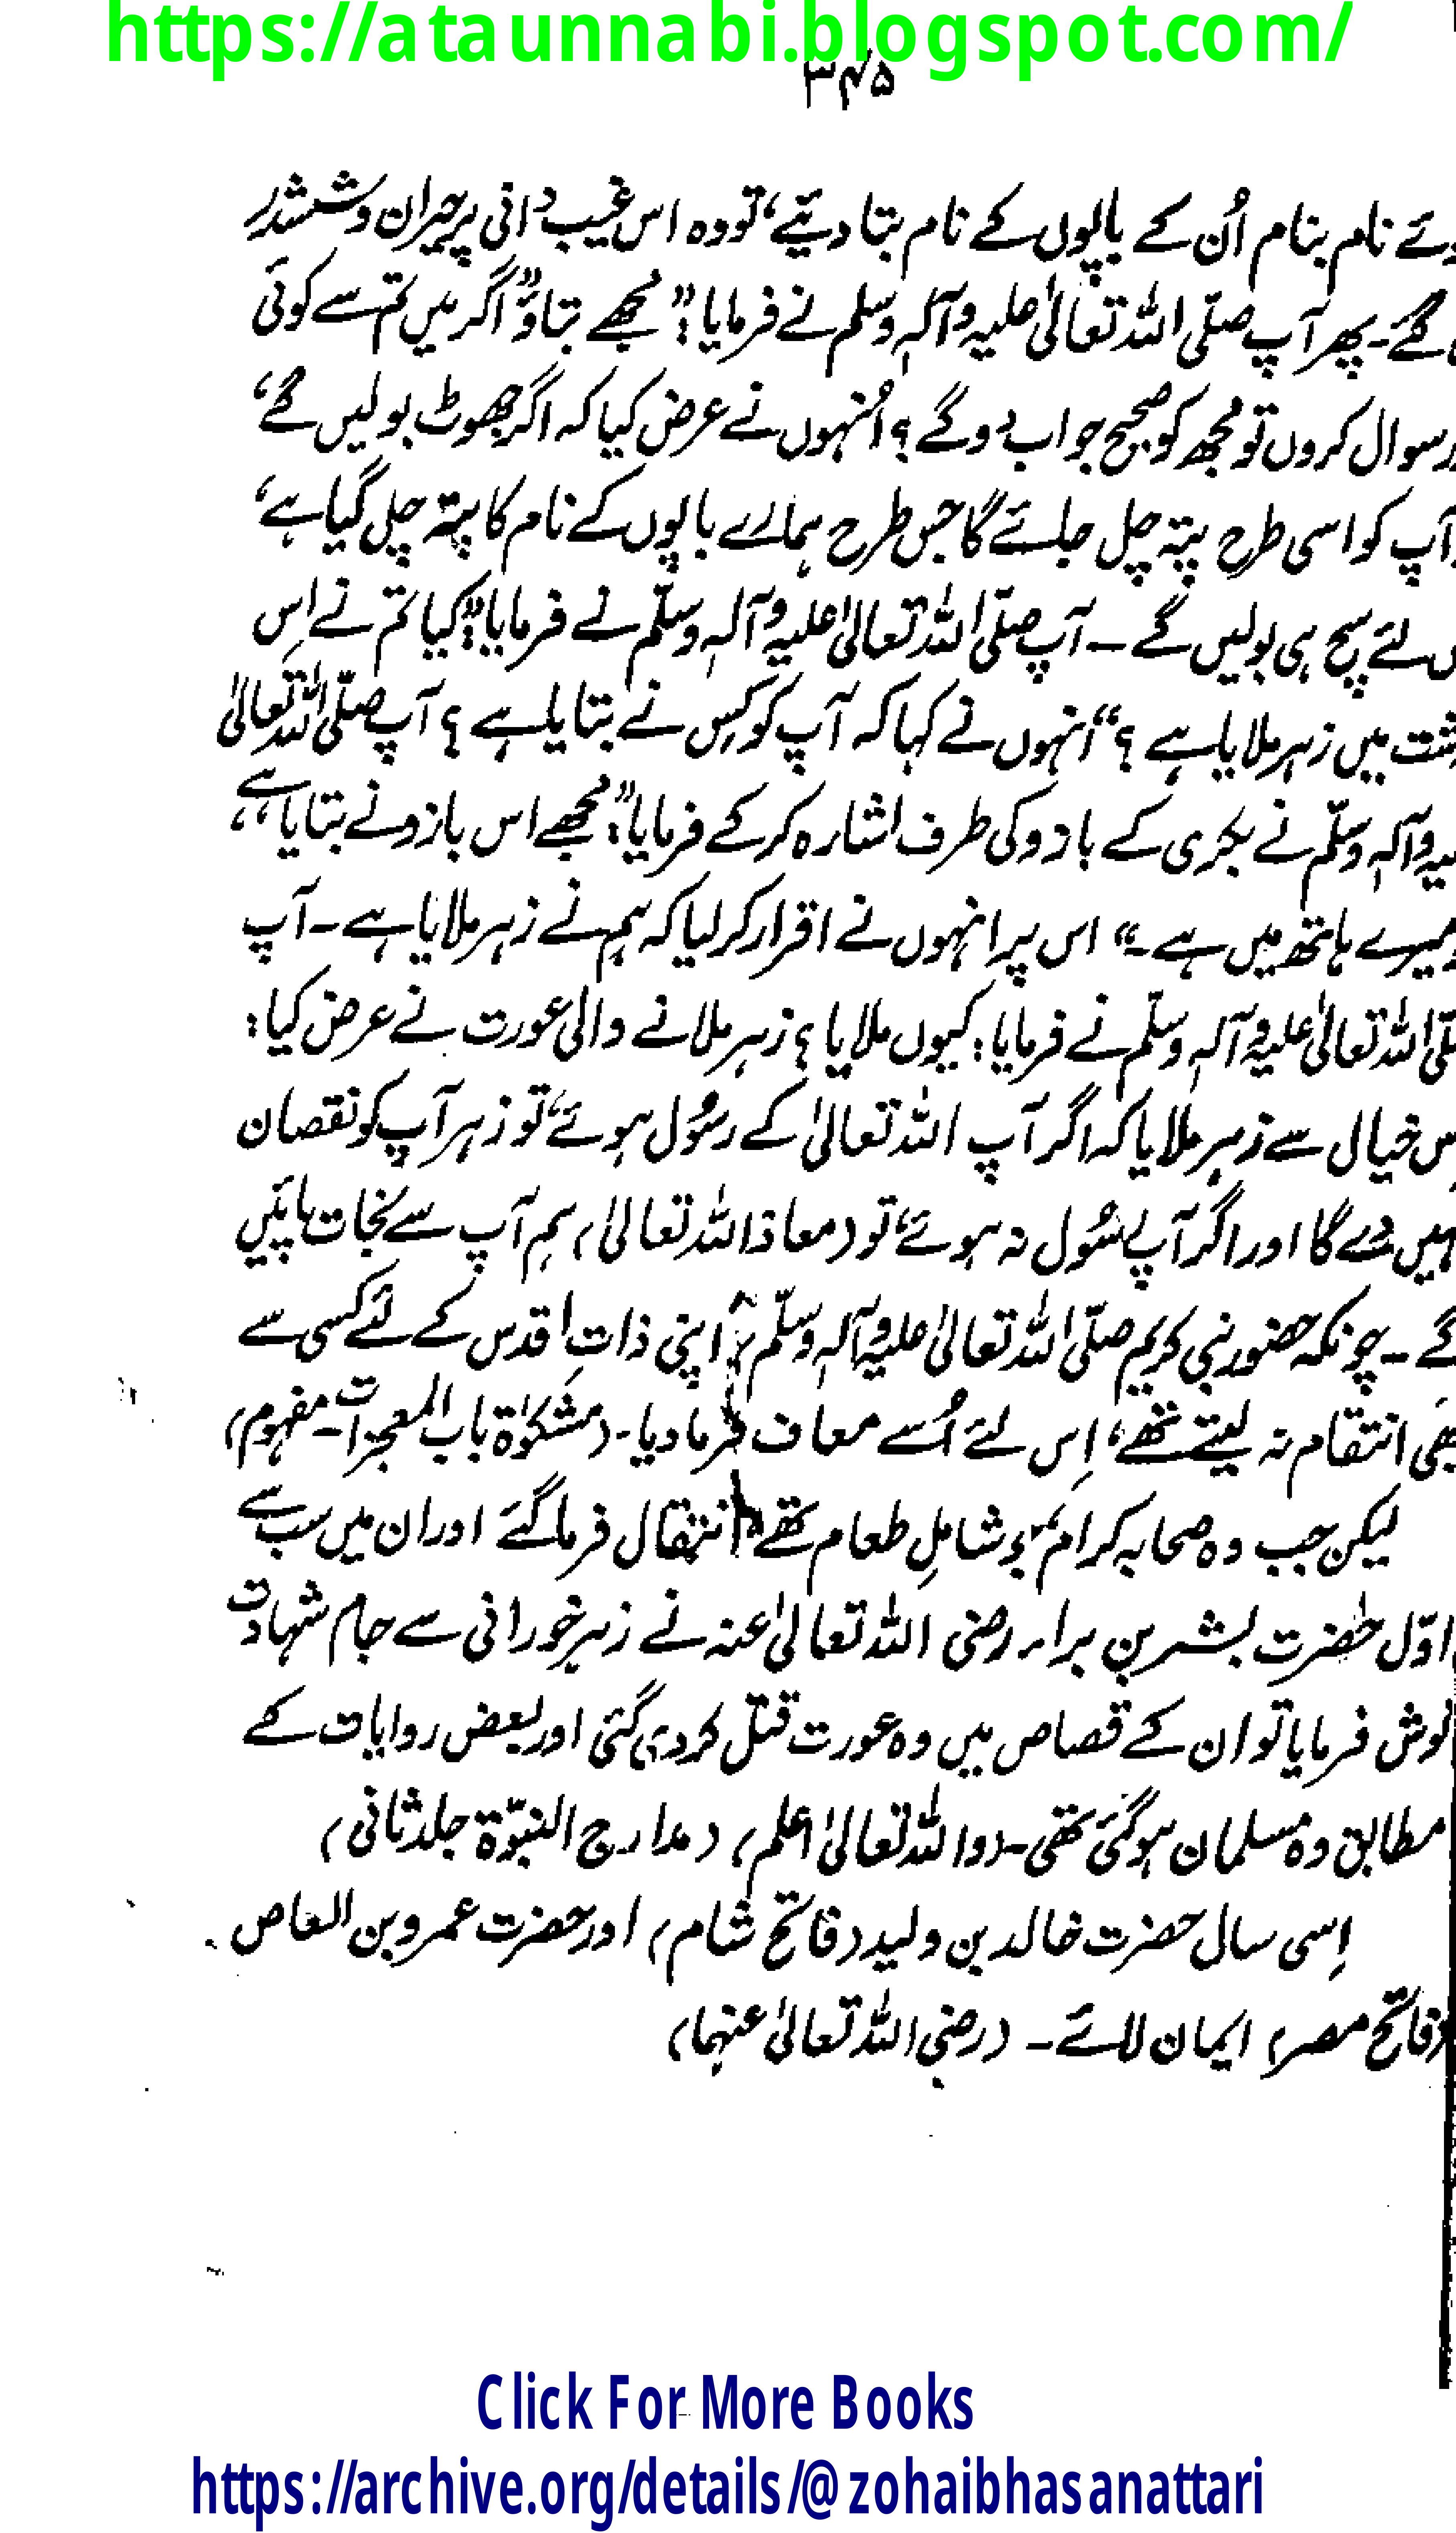 https://ataunnabi.blogspot.com/
۳۴۵
نام بنام اُن کے باپوں کے نام بتا دیئے، تو وہ اس غیب دانی پر حیران و ششدر
گئے۔ پھر آپ صلّی اللہ تعالیٰ علیہ وآلہٖ وسلم نے فرمایا: ”مجھے بتاؤ“ اگر میں تم سے کوئی
سوال کروں تو مجھ کو صحیح جواب دو گے؟ اُنہوں نے عرض کیا کہ اگر جھوٹ بولیں گے،
آپ کو اسی طرح پتہ چل جائے گا جس طرح ہمارے باپوں کے نام کا پتہ چل گیا ہے،
لئے سچ ہی بولیں گے۔ آپ صلّی اللہ تعالیٰ علیہ وآلہٖ وسلّم نے فرمایا: ”کیا تم نے اِس
میں زہر ملایا ہے؟“ انہوں نے کہا کہ آپ کو کس نے بتایا ہے؟ آپ صلّی اللہ تعالیٰ
وآلہٖ وسلّم نے بکری کے بازو کی طرف اشارہ کر کے فرمایا: ”مجھے اس بازو نے بتایا ہے،
میرے ہاتھ میں ہے۔“ اس پر انہوں نے اقرار کر لیا کہ ہم نے زہر ملایا ہے۔ آپ
اللہ تعالیٰ علیہ وآلہٖ وسلّم نے فرمایا: کیوں ملایا؟ زہر ملانے والی عورت نے عرض کیا:
خیال سے زہر ملایا کہ اگر آپ اللہ تعالیٰ کے رسُول ہوئے، تو زہر آپ کو نقصان
دے گا اور اگر آپ رسُول نہ ہوئے، تو (معاذ اللہ تعالیٰ) ہم آپ سے نجات پائیں
گے۔ چونکہ حضور نبی کریم صلّی اللہ تعالیٰ علیہ وآلہٖ وسلّم اپنی ذاتِ اقدس کے لئے کسی سے
انتقام نہ لیتے تھے، اِس لئے اُسے معاف فرما دیا۔ (مشکوٰۃ باب المعجزات۔ مفہوم)
لیکن جب وہ صحابہ کرام جو شاملِ طعام تھے انتقال فرما گئے اور ان میں سب سے
اوّل حضرت بشر بن براء رضی اللہ تعالیٰ عنہ نے زہر خورانی سے جام شہادت
نوش فرمایا تو ان کے قصاص میں وہ عورت قتل کر دی گئی اور بعض روایات کے
مطابق وہ مسلمان ہو گئی تھی۔ (واللہ تعالیٰ اعلم) (مدارج النبوّۃ جلد ثانی)
اِسی سال حضرت خالد بن ولید (فاتح شام) اور حضرت عمرو بن العاص
(فاتح مصر) ایمان لائے۔ (رضی اللہ تعالیٰ عنہما)
Click For More Books
https://archive.org/details/@zohaibhasanattari